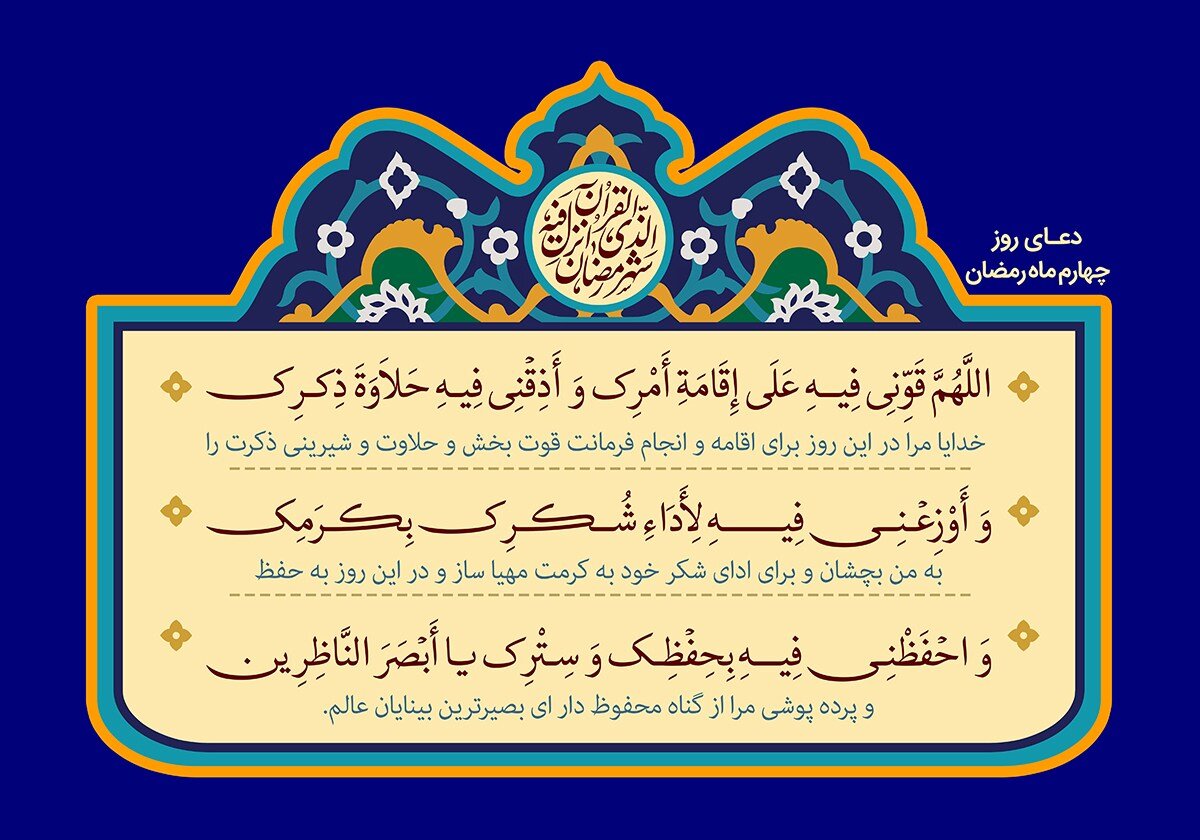 شهر رمضان
الذی انزل فیه
القرآن
دعای روز
چهارم ماه رمضان
اللَّهُمَّ قَوِّنِی فِیهِ عَلَی إِقَامَةِ أَمْرِک وَ أَذِقْنِی فِیهِ حَلاَوَةَ ذِکرِک
خدایا مرا در این روز برای اقامه و انجام فرمانت قوت بخش و حلاوت و شیرینی ذکرت را
وَ أَوْزِعْنِی فِیهِ لِأَدَاءِ شُکرِک بِکَرَمِک
به من بچشان و برای ادای شکر خود به کرمت مهیا ساز و در این روز به حفظ
وَ احْفَظْنِی فِیهِ بِحِفْظِک وَ سِتْرِک یا أَبْصَرَ النَّاظِرِین
و پرده پوشی مرا از گناه محفوظ دار ای بصیرترین بینایان عالم.